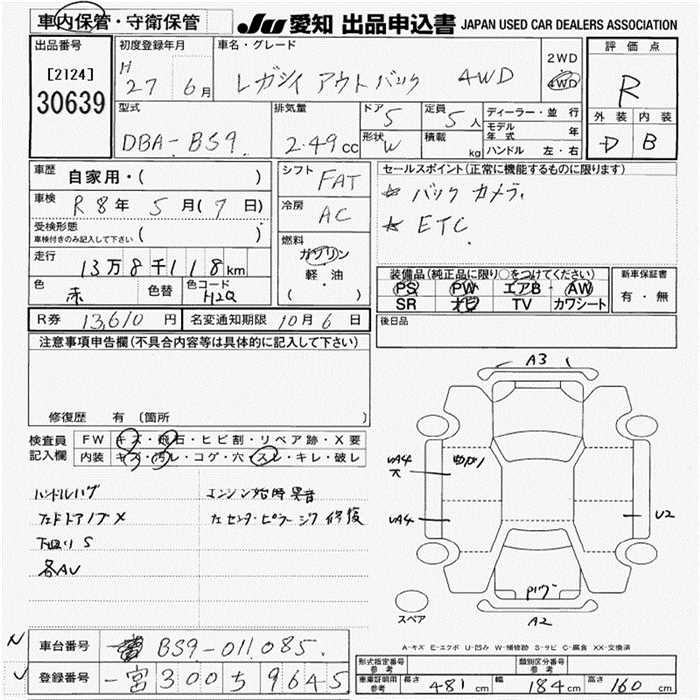 車内保管・守衛保管
JU 愛知 出品申込書 JAPAN USED CAR DEALERS ASSOCIATION
出品番号
[2124]
30639
初度登録年月
H 27 6月
車名・グレード
レガシィ アウトバック 4WD
2WD
4WD
評価点
R
外装 内装
D B
型式
DBA-BS9
排気量
2.49cc
ドア 5
形状 W
定員 5人
積載 kg
ディーラー・並行
モデル年式 年
ハンドル 左・右
車歴
自家用・( )
車検
R8年 5月(7日)
受検形態
車検付きのみ記入して下さい ( )
走行
13万8千118km
色
赤
色替
色コード
H2Q
シフト
FAT
冷房
AC
燃料
ガソリン
軽・油
( ・ )
セールスポイント(正常に機能するものに限ります)
☆ バックカメラ.
☆ ETC.
装備品(純正品に限り○をつけてください)
PS PW エアB・AW
SR ナビ TV カワシート
新車保証書
有・無
R券 13,610円
名変通知期限 10月6日
後日品
注意事項申告欄(不具合内容等は具体的に記入して下さい)
修復歴 有 〔箇所 〕
検査員
記入欄
FW キズ・飛石・ヒビ割・リペア跡・X要
内装 キズ・汚レ・コゲ・穴・スレ・キレ・破レ
ハンドルハゲ
エンジン始時異音
下回りS
各AU
A3
UA4
UA4
U2
A2
スペア
A-キズ E-エクボ U-凹み W-補修跡 S-サビ C-腐食 XX-交換済
N 車台番号 BS9-011085.
J 登録番号 一宮300 ち 9645
形式指定番号
参考
類別区分番号
参考
車庫証明用
参考
長さ 481cm 幅 184cm 高さ 160cm